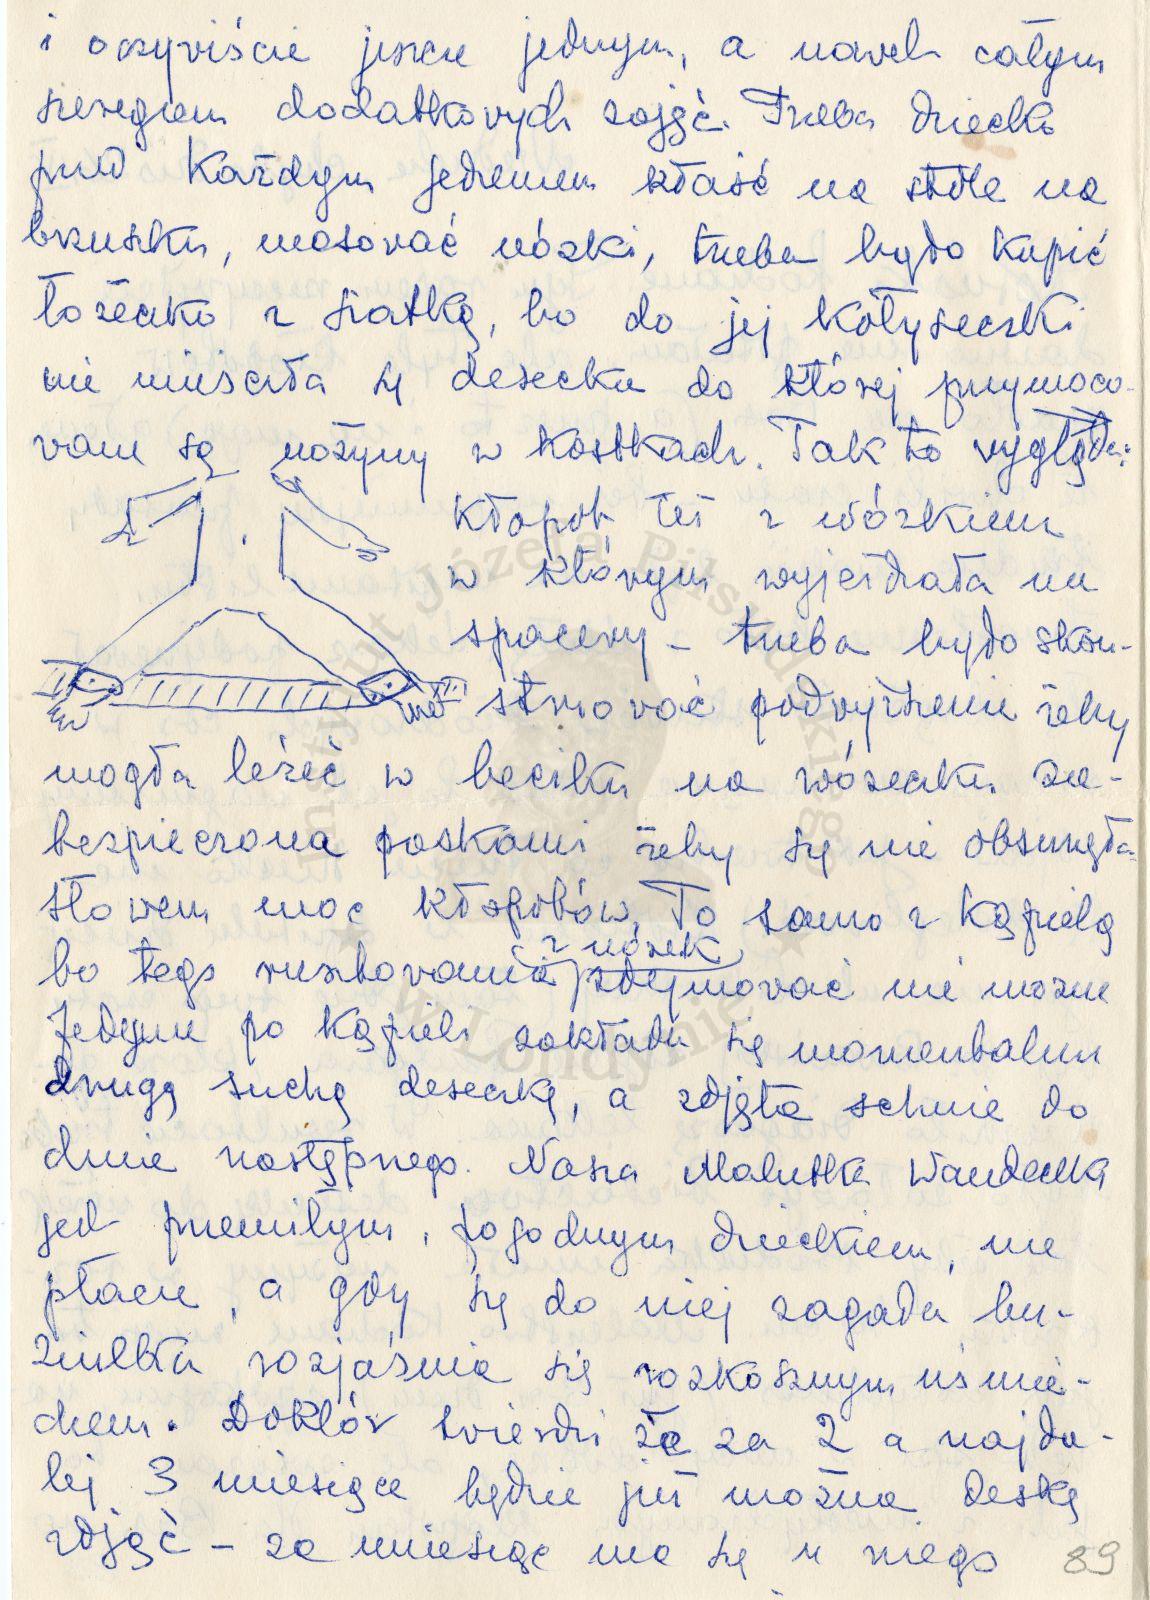 i oczywiście jeszcze jednym, a nawet całym
szeregiem dodatkowych zajęć. Trzeba dziecko
przed każdym jedzeniem kłaść na stole na
brzuszku, masować nóżki, trzeba było kupić
łóżeczko z siatką, bo do jej kołyseczki
nie mieściła się deseczka do której przymoco-
wane są nóżyny w kostkach. Tak to wygląda:
Kłopot też z wózkiem
w którym wyjeżdżała na
spacery – trzeba było skon-
struować podwyższenie żeby
mogła leżeć w beciku na wózeczku za-
bezpieczona paskami żeby się nie obsunęła
słowem moc kłopotów. To samo z kąpielą
bo tego rusztowania z nóżek zdejmować nie można
Jedynie po kąpieli zakłada się momentalnie
drugą suchą deseczkę, a zdjęta schnie do
dnia następnego. Nasza Malutka Wandeczka
jest przemiłym, pogodnym dzieckiem, nie
płacze, a gdy się do niej zagada bu-
ziulka rozjaśnia się rozkosznym uśmie-
chem. Doktór twierdzi że za 2 a najda-
lej 3 miesiące będzie już można deskę
zdjąć – za miesiąc ma się u niego
89
Instytut Józefa Piłsudskiego
w Londynie